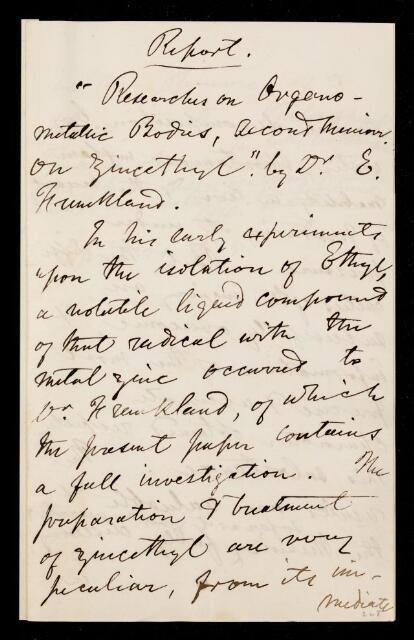 Report.
"Researches on Organo-
metallic Bodies, second Memoir
on Zincethyl". by Dr. E.
Frankland.
In his early experiments
upon the isolation of Ethyl,
a volatile liquid compound
of that radical with the
metal zinc occurred to
Dr. Frankland, of which
the present paper contains
a full investigation. The
preparation & treatment
of zincethyl are very
peculiar, from its im-
mediate